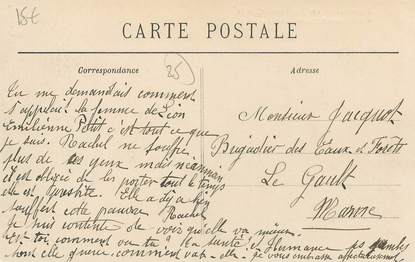 15€
CARTE POSTALE
25
Correspondance
Adresse
Tu me demandais comment
s'appelait la femme de Léon
Emilienne Petit c'est tout ce que
je sais. Rachel ne souffre
plus de ses yeux mais néanmoin
il est obligé de les porter tout le temps
elle est. Elle a déjà bien
souffert cote pauvre Rachel
je suis contente de voir qu'elle va mieux.
Et toi comment va ta santé et
sont elle guere comment vat-elle. je vous embrasse affectueusement
Monsieur Jacquot
Brigadier des Eaux et Forêts
Le Gault
Marne